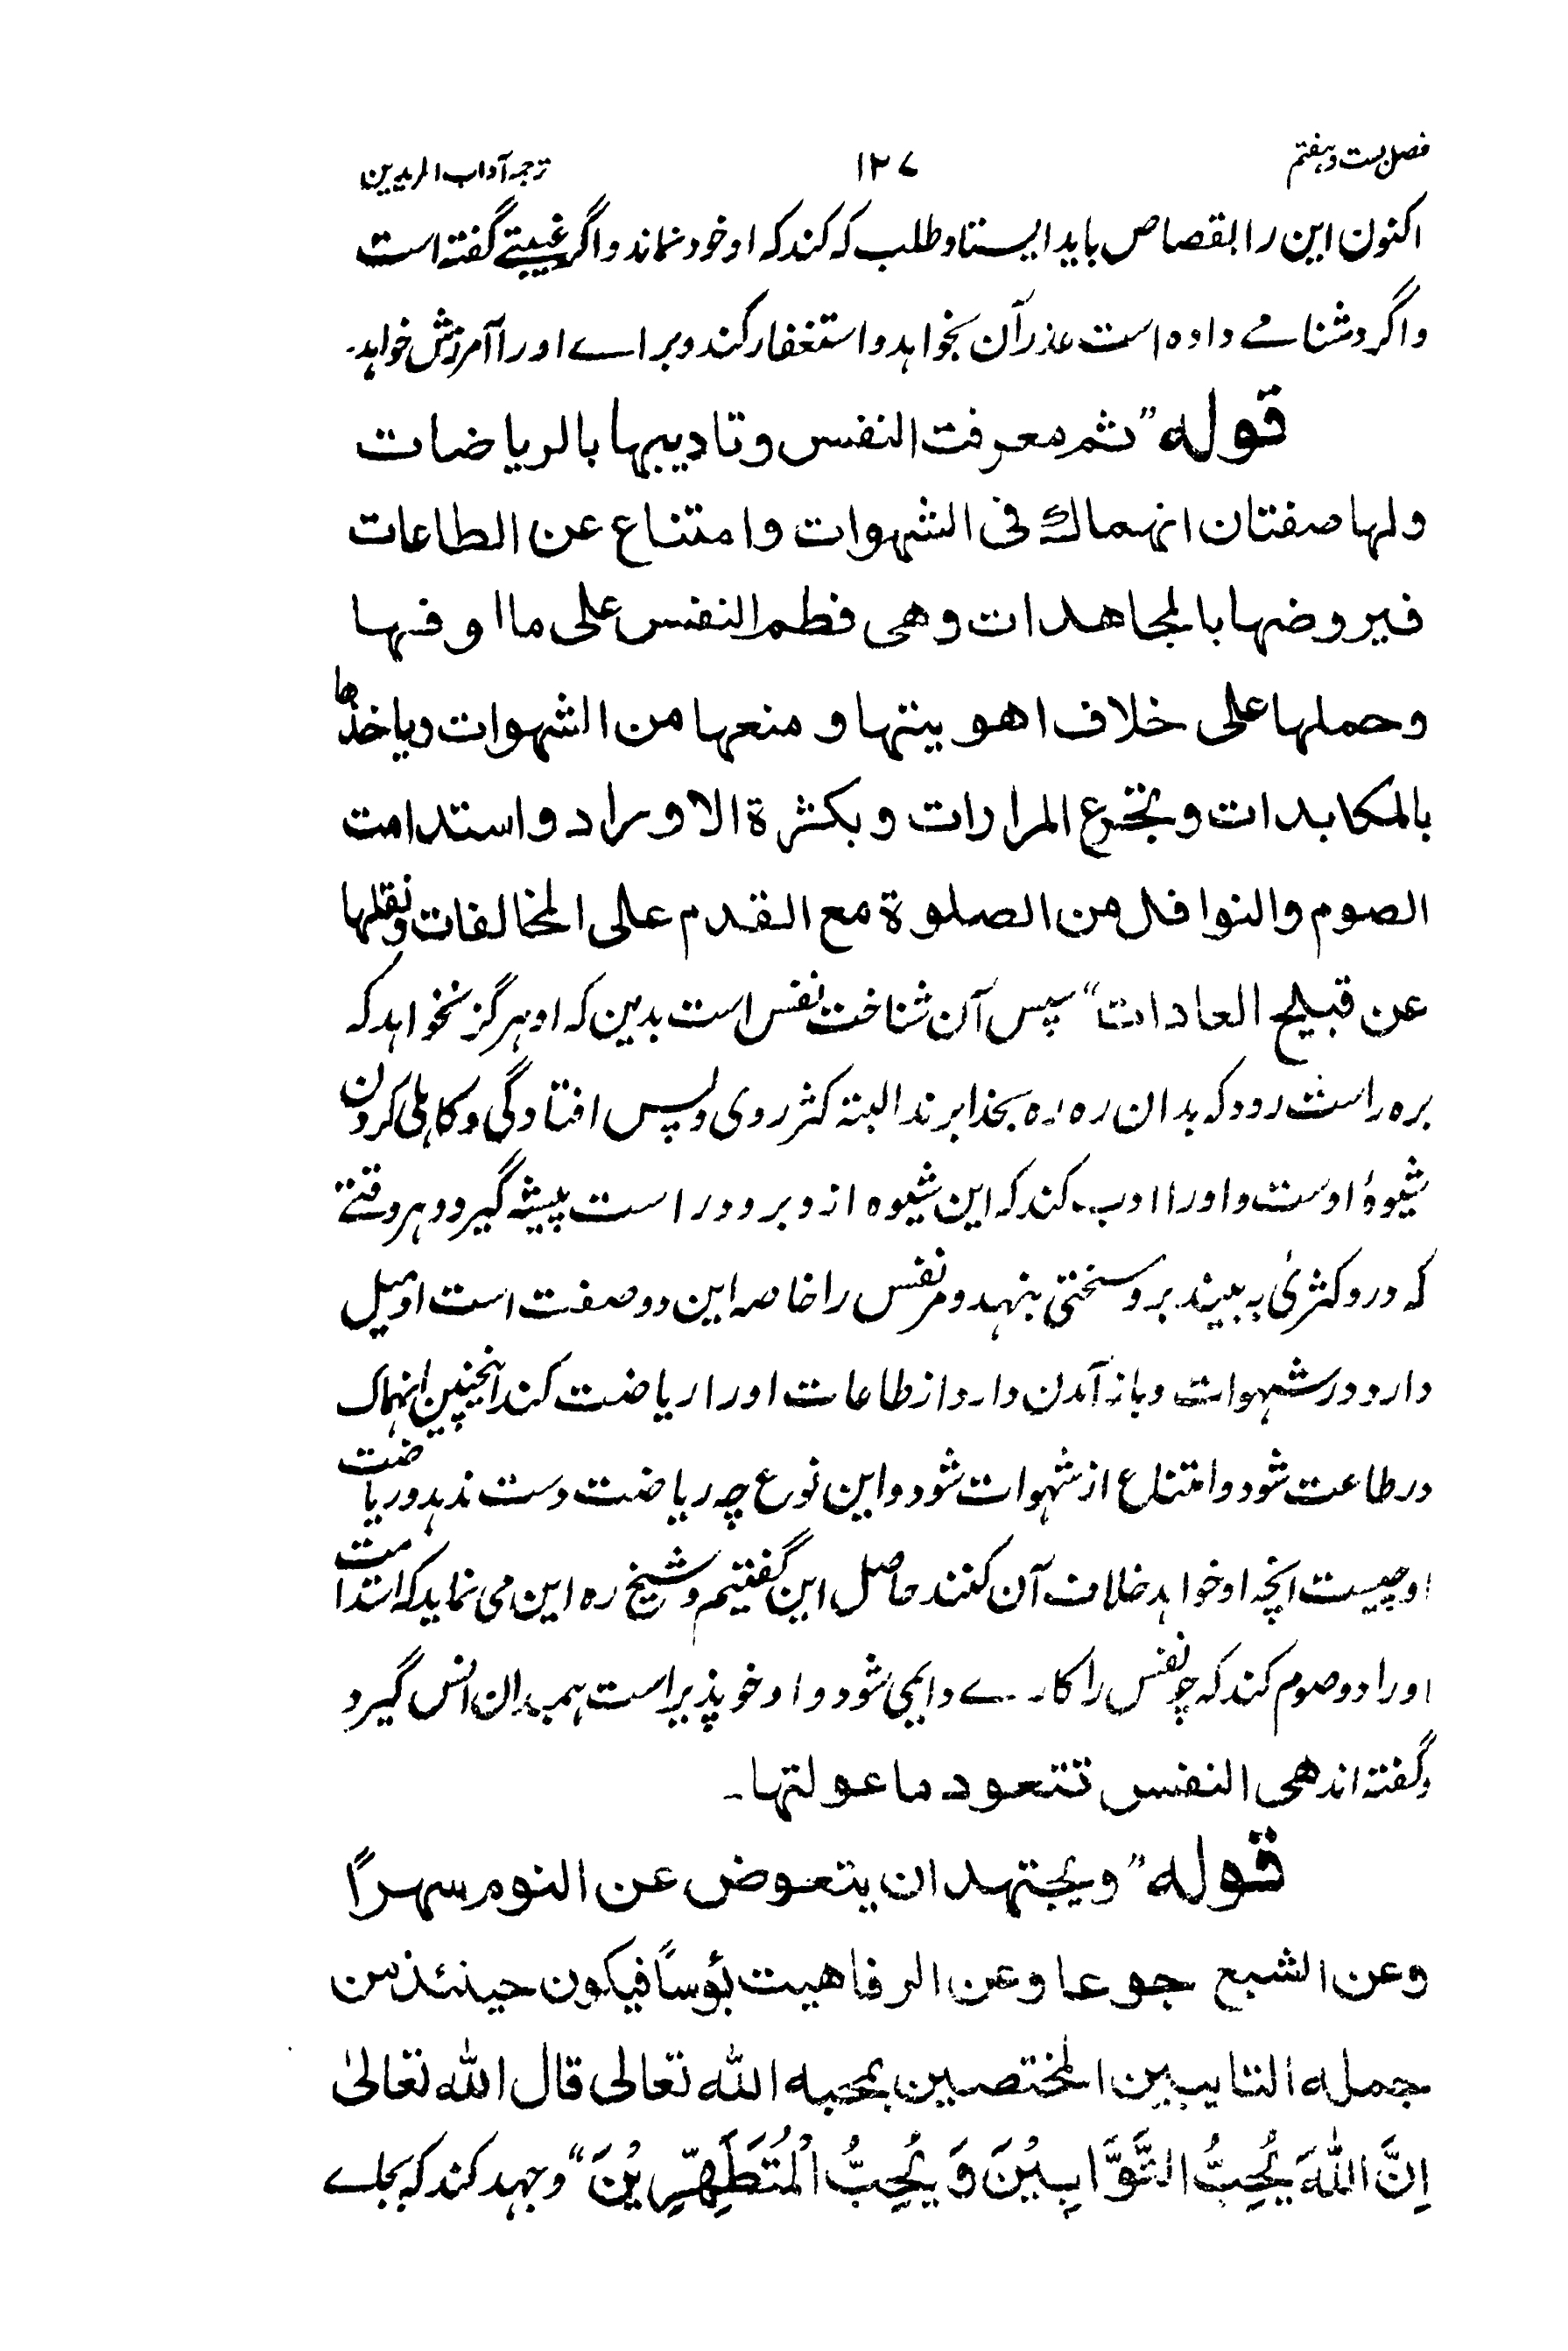 فصل بست و هفتم
۱۲۷
ترجمه آداب المریدین
اکنون این را بقصاص باید ایستاد و طلب که کند که او خود نماند و اگر غیبتے گفته است
و اگر دشنامے داده است عذر آن بخواهد و استغفار کند و براے او را آمرزش خواهد۔
قوله "ثم معرفت النفس وتادیبها بالریاضات
ولها صفتان انهماك فی الشهوات وامتناع عن الطاعات
فیروضها بالمجاهدات وهی فطم النفس علی ماالوفها
وحملها علی خلاف اهویتها و منعها من الشهوات ویاخذها
بالمکابدات وتجترع المرارات وبکثرة الاوراد واستدامت
الصوم والنوافل من الصلوة مع القدم علی المخالفات ونقلها
عن قبیح العادات" سپس آن شناخت نفس است بدین که او هرگز نخواهد که
بره راست رود که بدان ره ره بخدا برند البته کثر روی و پس افتادگی و کاهلی کردن
شیوهٔ اوست و او را ادب کند که این شیوه از و برود راست پیشه گیرد و هر وقتے
که درو کثری به بیند برو سختی بنهد و مر نفس را خاصه این دو صفت است او میل
دارد در شهوات و باز آمدن دارد از طاعات او را ریاضت کند انچنین انهماک
در طاعت شود و امتناع از شهوات شود و این نوع چه ریاضت دست ندهد و ریاضت
او چیست انچه او خواهد خلاف آن کنند حاصل این گفتیم و شیخ ره این می نماید که استدامت
اوراد و صوم کند که چو نفس را کارے دایمی شود و او خو پذیر است همبدان انس گیرد
و گفته اند هی النفس تتعود ما عولتها۔
قوله "ویجتهد ان یتعوض عن النوم سهرًا
وعن الشبع جوعا وعن الرفاهیت بؤسًا فیکون حینئذ من
جمله التایبین المختصین بمحبه الله تعالی قال الله تعالیٰ
اِنَّ اللّٰهَ یُحِبُّ التَّوَّابِیْنَ وَ یُحِبُّ الْمُتَطَهِّرِیْنَ" و جهد کند که بجاے